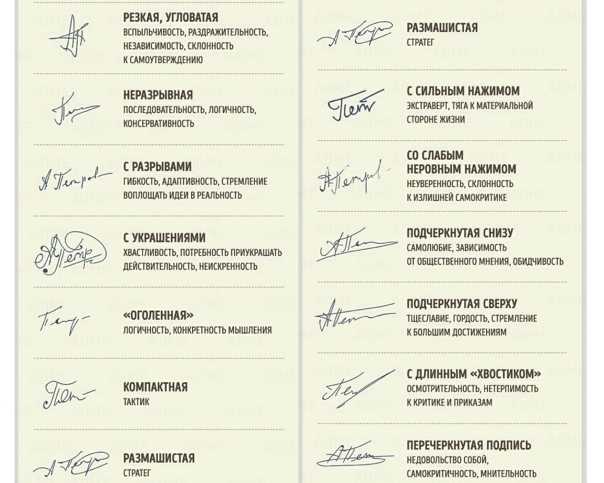 РЕЗКАЯ, УГЛОВАТАЯ
ВСПЫЛЬЧИВОСТЬ, РАЗДРАЖИТЕЛЬНОСТЬ,
НЕЗАВИСИМОСТЬ, СКЛОННОСТЬ
К САМОУТВЕРЖДЕНИЮ
НЕРАЗРЫВНАЯ
ПОСЛЕДОВАТЕЛЬНОСТЬ, ЛОГИЧНОСТЬ,
КОНСЕРВАТИВНОСТЬ
С РАЗРЫВАМИ
ГИБКОСТЬ, АДАПТИВНОСТЬ, СТРЕМЛЕНИЕ
ВОПЛОЩАТЬ ИДЕИ В РЕАЛЬНОСТЬ
А Петров
С УКРАШЕНИЯМИ
ХВАСТЛИВОСТЬ, ПОТРЕБНОСТЬ ПРИУКРАШАТЬ
ДЕЙСТВИТЕЛЬНОСТЬ, НЕИСКРЕННОСТЬ
«ОГОЛЕННАЯ»
ЛОГИЧНОСТЬ, КОНКРЕТНОСТЬ МЫШЛЕНИЯ
КОМПАКТНАЯ
ТАКТИК
РАЗМАШИСТАЯ
СТРАТЕГ
РАЗМАШИСТАЯ
СТРАТЕГ
С СИЛЬНЫМ НАЖИМОМ
ЭКСТРАВЕРТ, ТЯГА К МАТЕРИАЛЬНОЙ
СТОРОНЕ ЖИЗНИ
СО СЛАБЫМ
НЕРОВНЫМ НАЖИМОМ
НЕУВЕРЕННОСТЬ, СКЛОННОСТЬ
К ИЗЛИШНЕЙ САМОКРИТИКЕ
ПОДЧЕРКНУТАЯ СНИЗУ
САМОЛЮБИЕ, ЗАВИСИМОСТЬ
ОТ ОБЩЕСТВЕННОГО МНЕНИЯ, ОБИДЧИВОСТЬ
ПОДЧЕРКНУТАЯ СВЕРХУ
ТЩЕСЛАВИЕ, ГОРДОСТЬ, СТРЕМЛЕНИЕ
К БОЛЬШИМ ДОСТИЖЕНИЯМ
С ДЛИННЫМ «ХВОСТИКОМ»
ОСМОТРИТЕЛЬНОСТЬ, НЕТЕРПИМОСТЬ
К КРИТИКЕ И ПРИКАЗАМ
ПЕРЕЧЕРКНУТАЯ ПОДПИСЬ
НЕДОВОЛЬСТВО СОБОЙ,
САМОКРИТИЧНОСТЬ, МНИТЕЛЬНОСТЬ